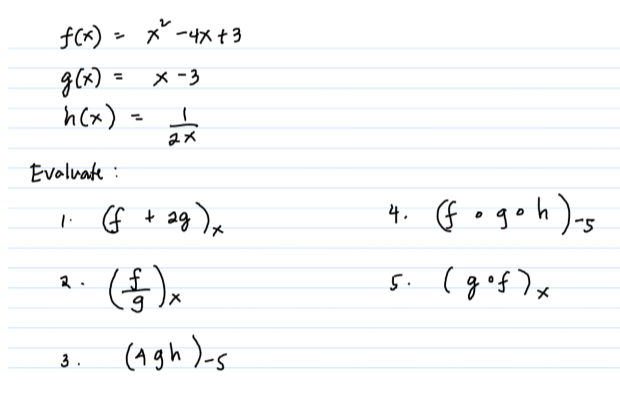 f(x) = x² - 4x + 3
g(x) = x - 3
h(x) = 1/2x
Evaluate :
1. (f + 2g)x
2. (f/g)x
3. (4gh)-5
4. (f ∘ g ∘ h)-5
5. (g ∘ f)x